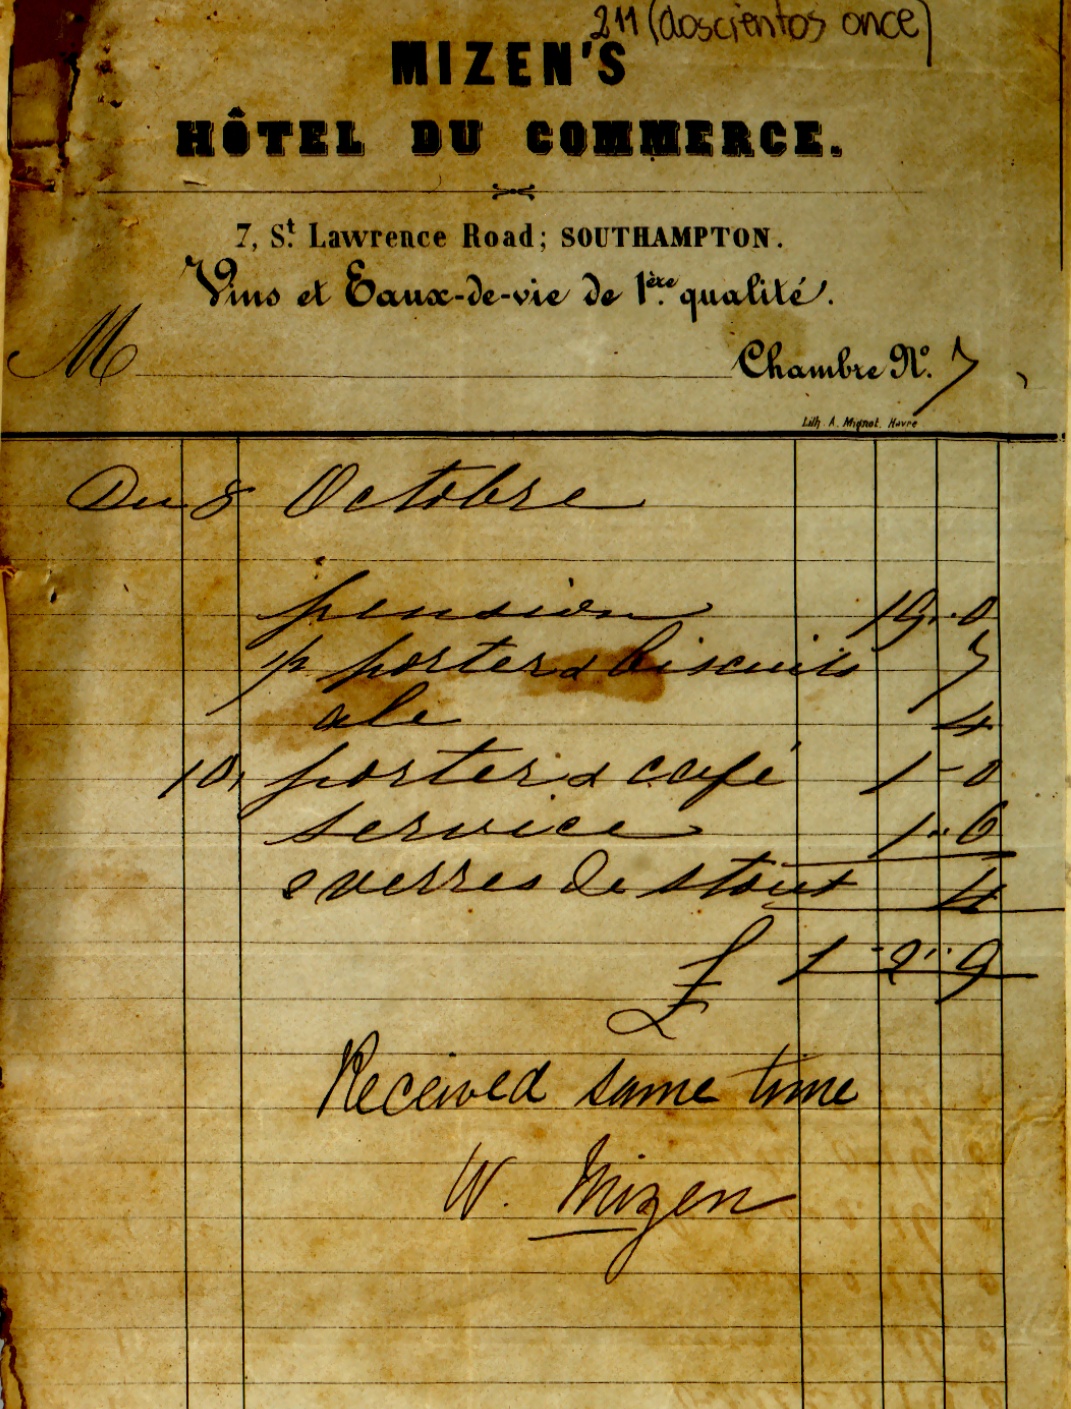 211 (doscientos once)
MIZEN'S
HÔTEL DU COMMERCE.
7, St. Lawrence Road; SOUTHAMPTON.
Vins et Eaux-de-vie de 1ère qualité.
M Chambre No. 7
Lith. A. Mignot, Havre
Du 8 Octobre
pension 19..0
p porter & biscuits 7
ale 4
10, porter & café 1-0
service 1..6
2 verres de stout 4
£ 1-2..9
Received same time
W. Mizen